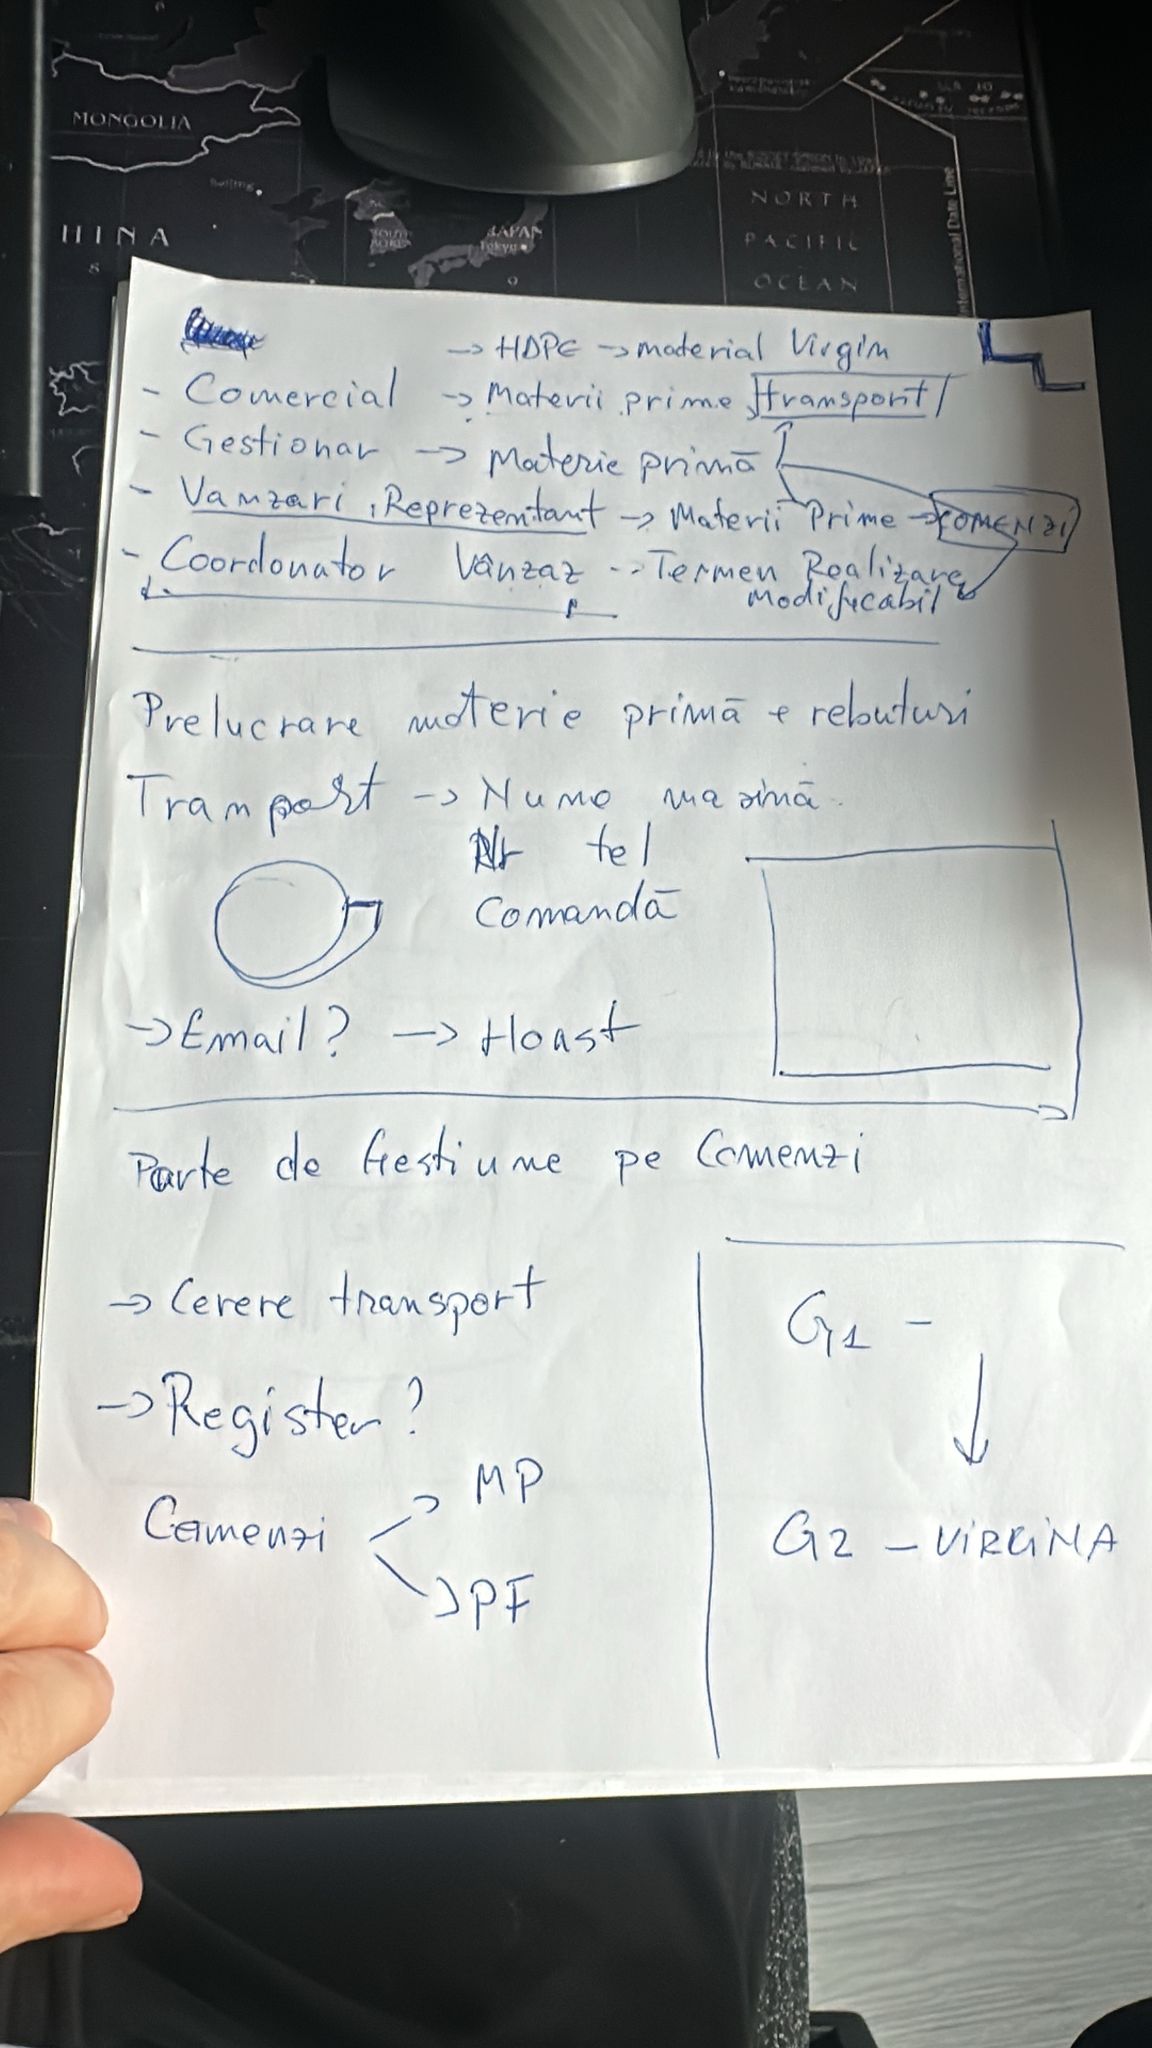 MONGOLIA
HINA
S
JAPAN
Tokyo
NORTH
PACIFIC
OCEAN
International Date Line
→ HDPE → material Virgin
- Comercial → Materii prime, transport
- Gestionar → Materie primă
- Vanzari, Reprezentant → Materii Prime → COMENZI
- Coordonator Vânzaz -- Termen Realizare
modificabil
Prelucrare materie primă + rebuturi
Tranport → Nume masină
Nr tel
Comandă
→ Email? → Hoast
Parte de Gestiune pe Comenzi
→ Cerere transport
→ Register?
Comenzi → MP
→ PF
G1 -
G2 - VIRGINA